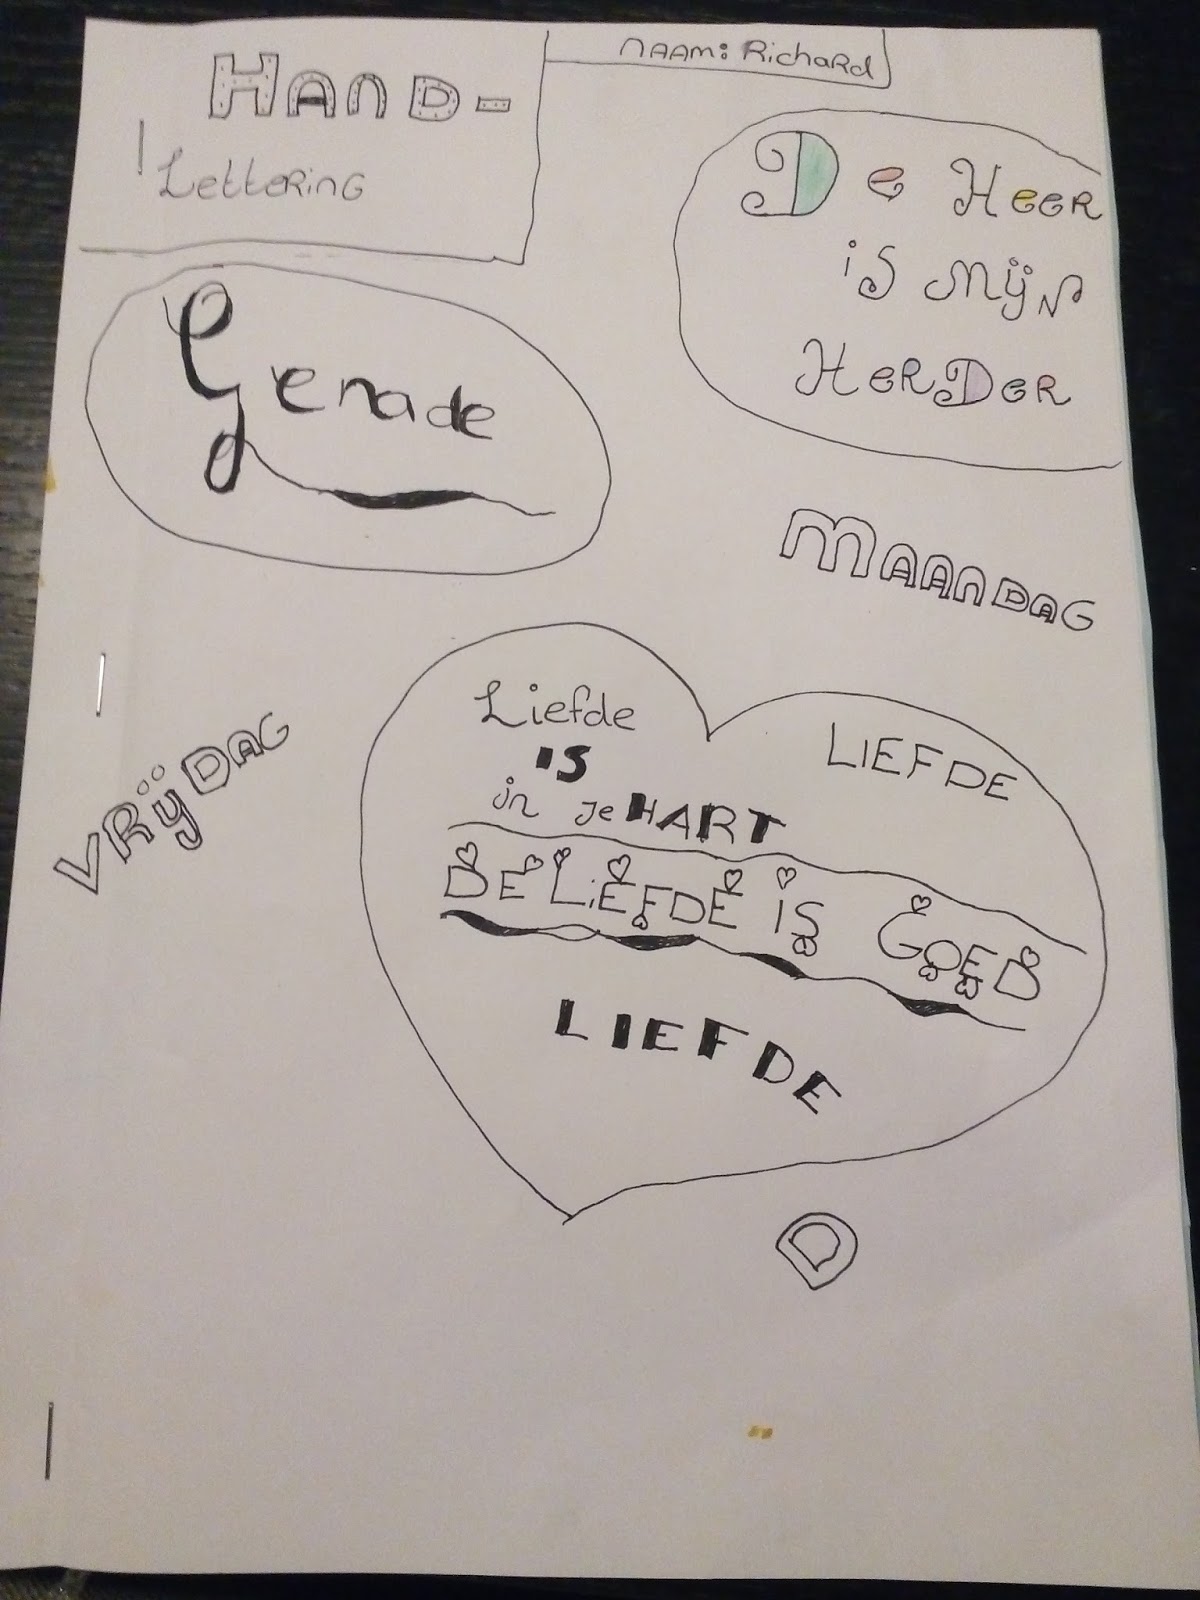 HAND-
LetteRinG
NAAM: RichaRd
De HeeR
is Mijn
HeRDeR
Genade
MAANDAG
VRijDAG
Liefde
IS
in je HART
LIEFDE
DE LiEFDE iS GOED
LIEFDE
D